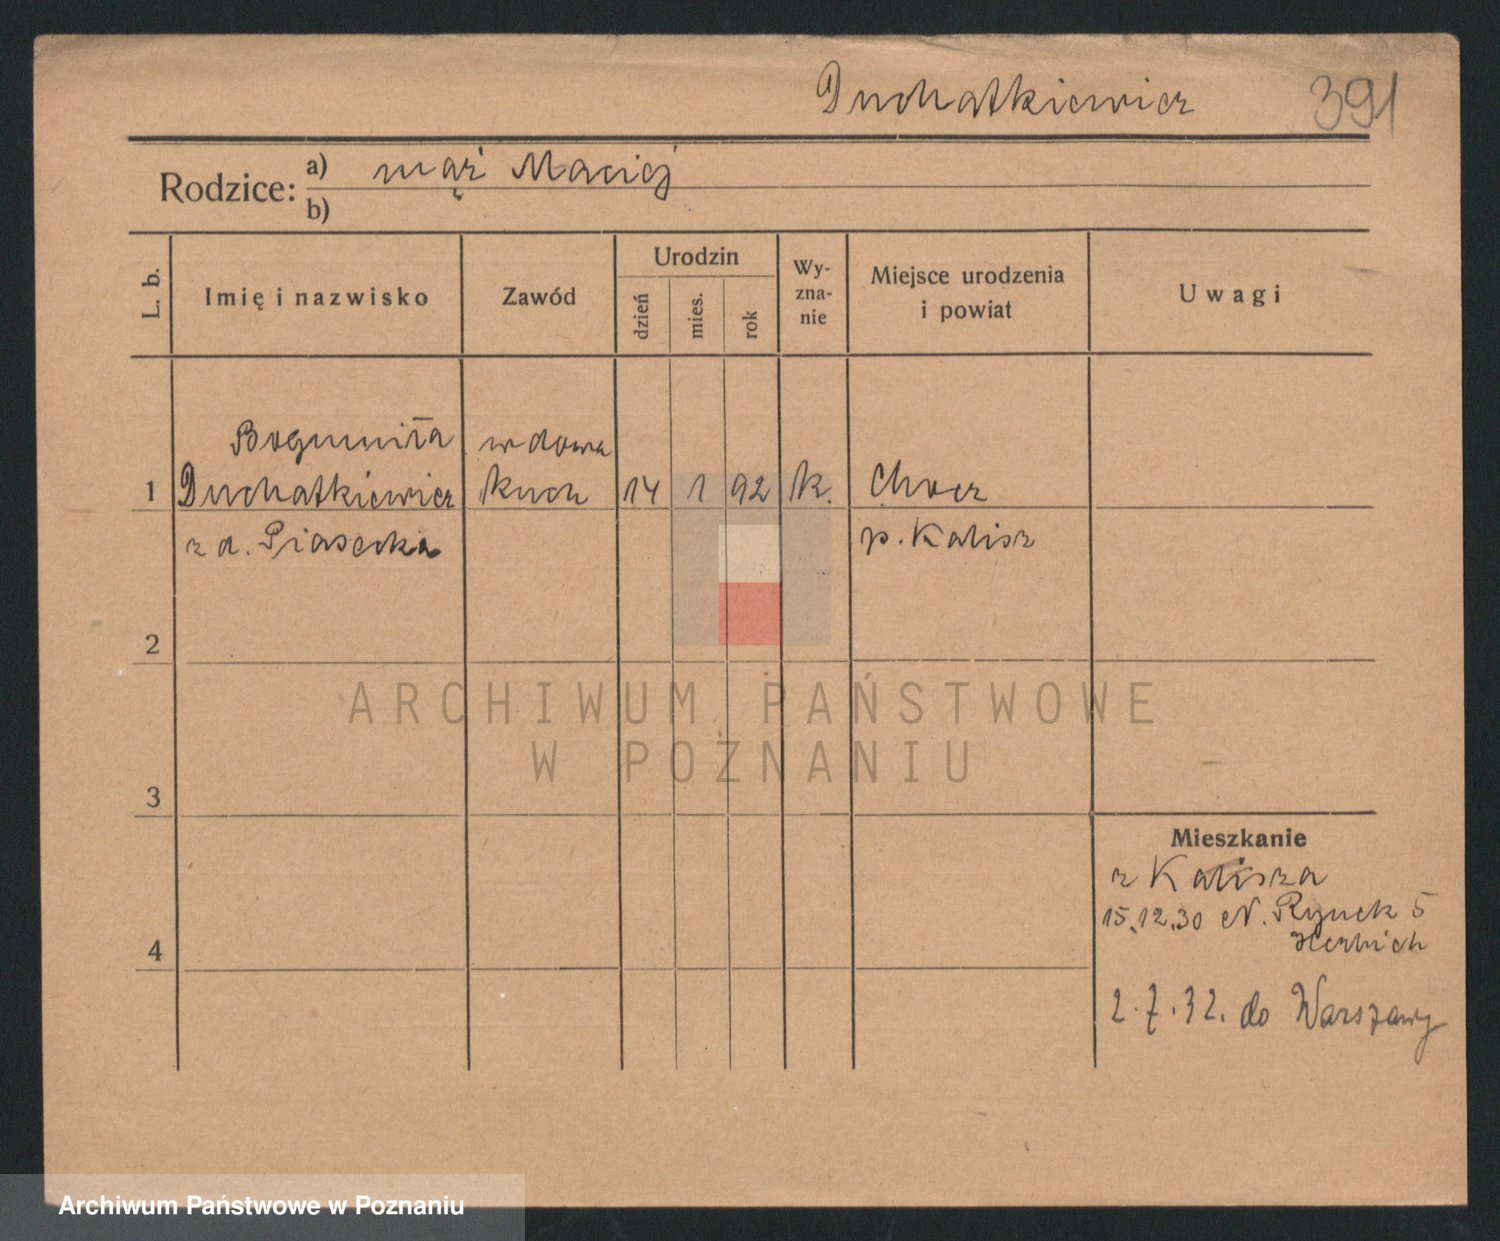 Duchatkiewicz 391
Rodzice: a) mąż Maciej
b)
L. b.
Imię i nazwisko
Zawód
Urodzin
dzień
mies.
rok
Wy-
zna-
nie
Miejsce urodzenia
i powiat
Uwagi
Bogumiła wdowa
1 Duchatkiewicz kuch 14 1 92 k. Chocz
z d. Piasecka p. Kalisz
2
ARCHIWUM PAŃSTWOWE
W POZNANIU
3
Mieszkanie
z Kalisza
15.12.30 N. Rynek 5
4
2.7.32. do Warszawy
Archiwum Państwowe w Poznaniu